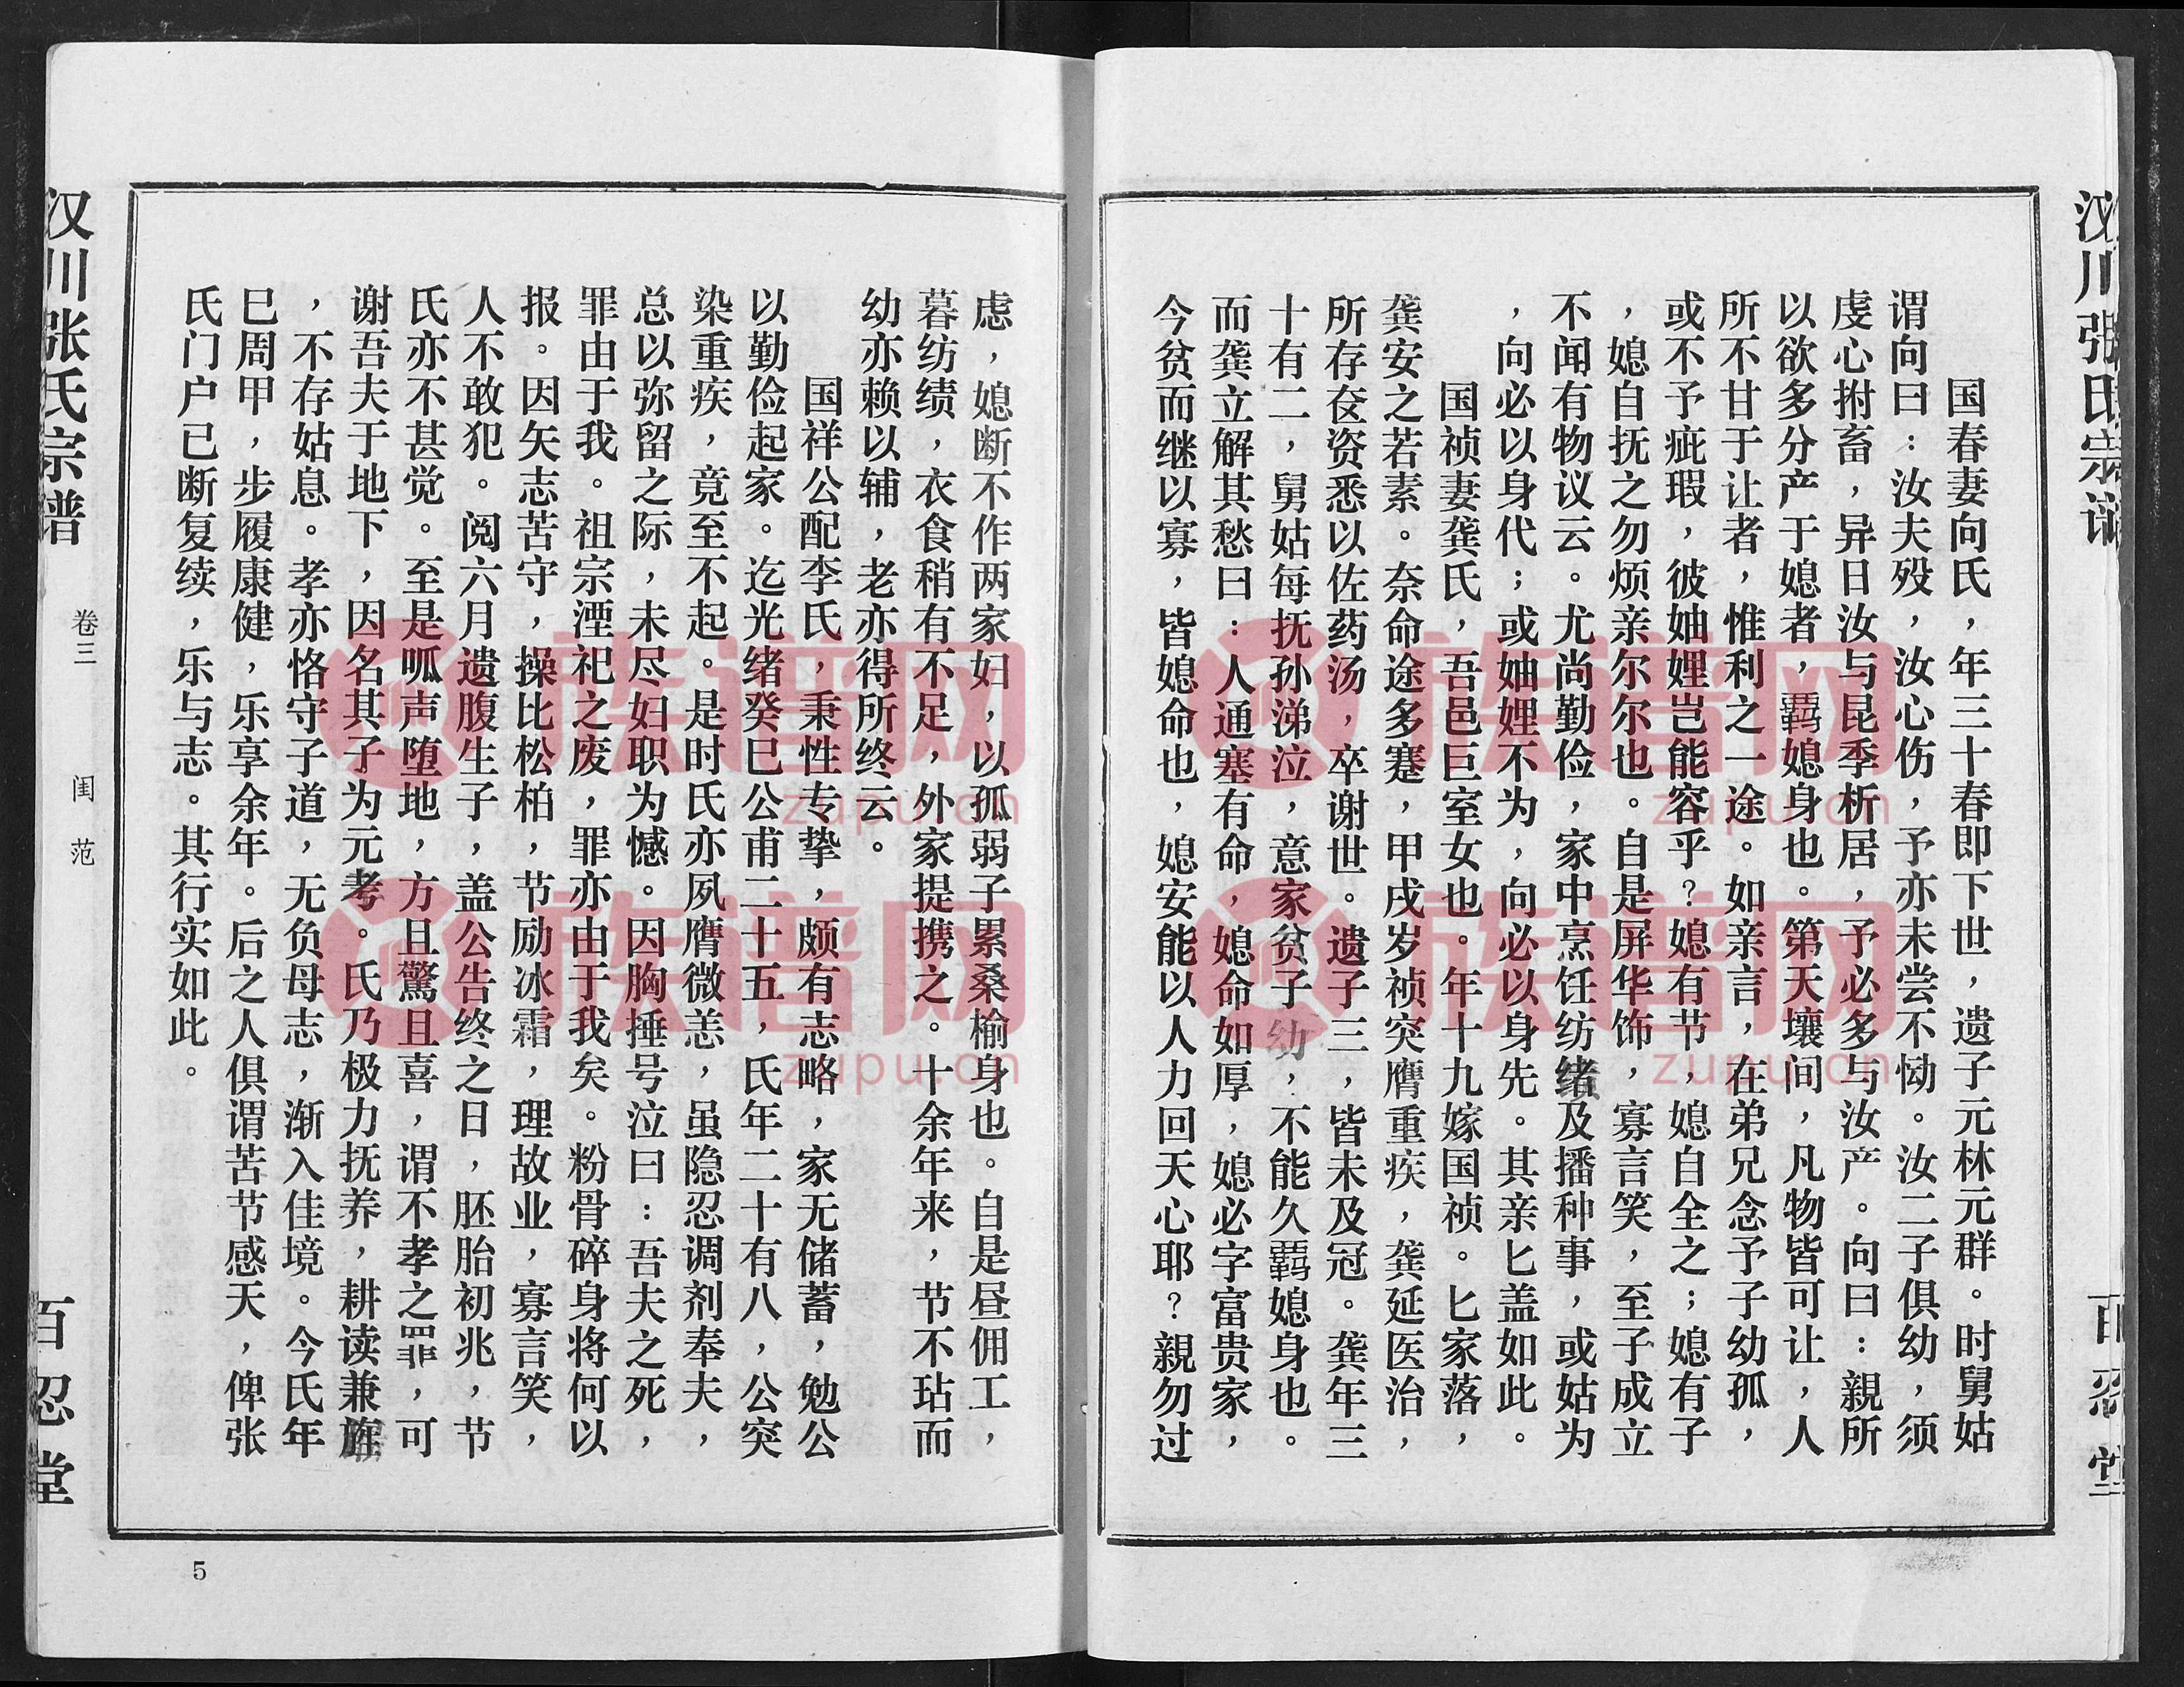 汉川张氏宗谱
百忍堂
国春妻向氏，年三十春即下世，遗子元林元群。时舅姑
谓向曰：汝夫殁，汝心伤，予亦未尝不恸。汝二子俱幼，须
虔心拊畜，异日汝与昆季析居，予必多与汝产。向曰：親所
以欲多分产于媳者，羁媳身也。第天壤间，凡物皆可让，人
所不甘于让者，惟利之一途。如亲言，在弟兄念予子幼孤，
或不予疵瑕，彼妯娌岂能容乎？媳有节，媳自全之；媳有子
，媳自抚之勿烦亲尔尔也。自是屏华饰，寡言笑，至子成立
不闻有物议云。尤尚勤俭，家中烹饪纺绪及播种事，或姑为
，向必以身代；或妯娌不为，向必以身先。其亲匕盖如此。
国祯妻龚氏，吾邑巨室女也。年十九嫁国祯。匕家落，
龚安之若素。奈命途多蹇，甲戌岁祯突膺重疾，龚延医治，
所存奁资悉以佐药汤，卒谢世。遗子三，皆未及冠。龚年三
十有二，舅姑每抚孙涕泣，意家贫子幼，不能久羁媳身也。
而龚立解其愁曰：人通塞有命，媳命如厚，媳必字富贵家，
今贫而继以寡，皆媳命也，媳安能以人力回天心耶？親勿过
虑，媳断不作两家妇，以孤弱子累桑榆身也。自是昼佣工，
暮纺绩，衣食稍有不足，外家提携之。十余年来，节不玷而
幼亦赖以辅，老亦得所终云。
国祥公配李氏，秉性专挚，颇有志略，家无储蓄，勉公
以勤俭起家。迄光绪癸巳公甫二十五，氏年二十有八，公突
染重疾，竟至不起。是时氏亦夙膺微恙，虽隐忍调剂奉夫，
总以弥留之际，未尽妇职为憾。因胸捶号泣曰：吾夫之死，
罪由于我。祖宗湮祀之废，罪亦由于我矣。粉骨碎身将何以
报。因矢志苦守，操比松柏，节励冰霜，理故业，寡言笑，
人不敢犯。阅六月遗腹生子，盖公告终之日，胚胎初兆，节
氏亦不甚觉。至是呱声堕地，方且驚且喜，谓不孝之罪，可
谢吾夫于地下，因名其子为元考。氏乃极力抚养，耕读兼
，不存姑息。孝亦恪守子道，无负母志，渐入佳境。今氏年
巳周甲，步履康健，乐享余年。后之人俱谓苦节感天，俾张
氏门户已断复续，乐与志。其行实如此。
汉川张氏宗谱
卷三
闺范
百忍堂
5
族谱网
zupu.cn
族谱网
zupu.cn
族谱网
zupu.cn
族谱网
zupu.cn